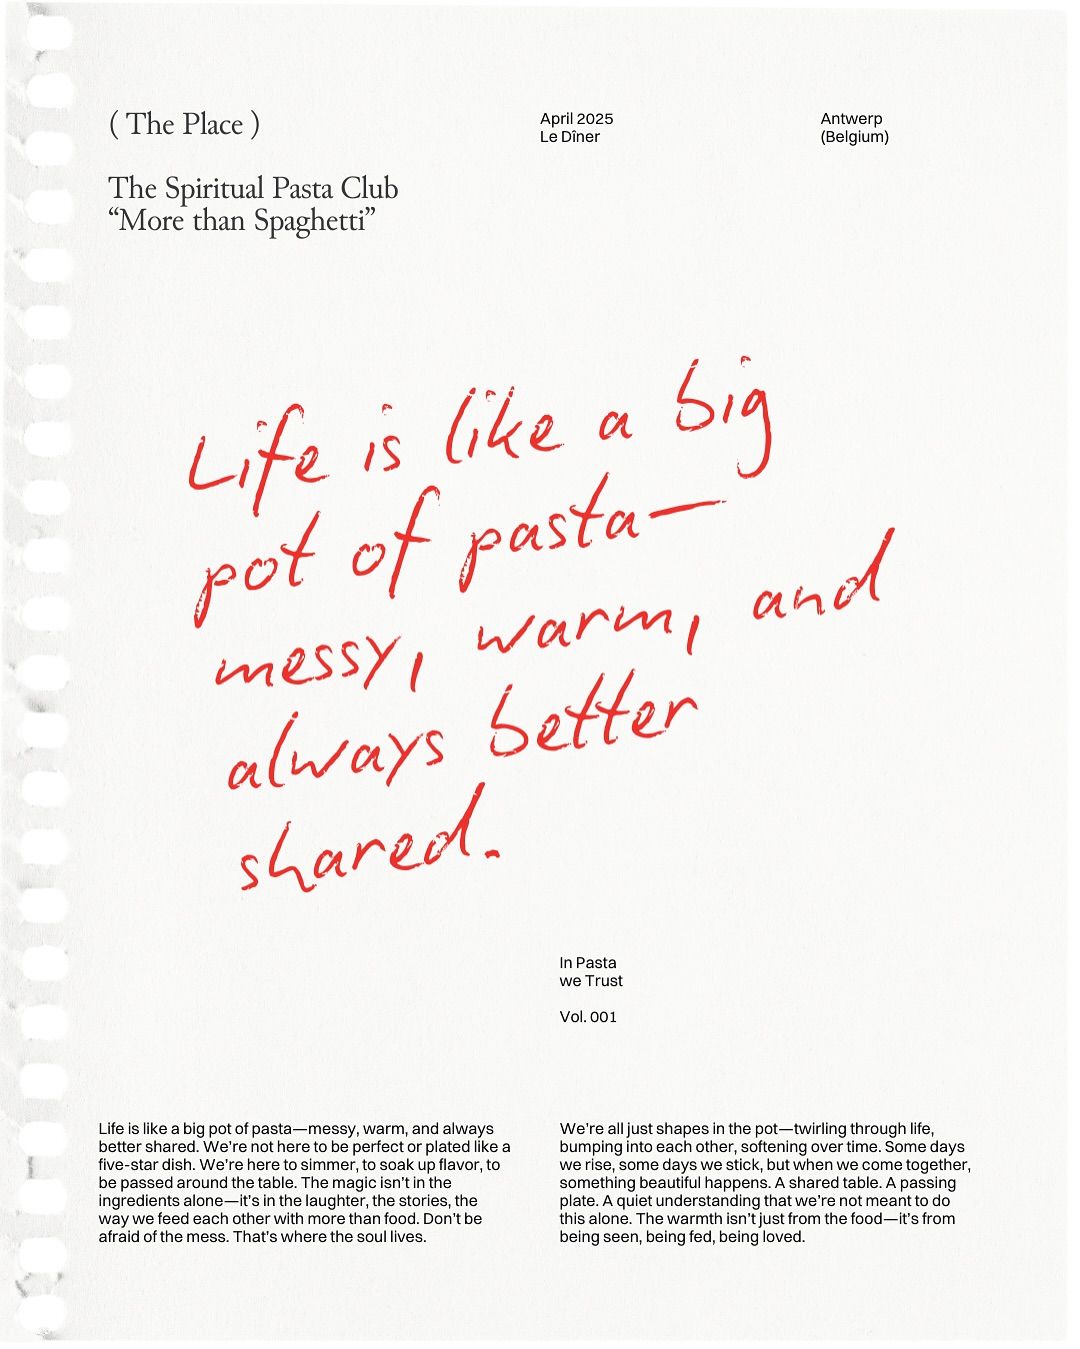 ( The Place )
April 2025
Le Dîner
Antwerp
(Belgium)
The Spiritual Pasta Club
“More than Spaghetti”
Life is like a big
pot of pasta—
messy, warm, and
always better
shared.
In Pasta
we Trust
Vol. 001
Life is like a big pot of pasta—messy, warm, and always
better shared. We’re not here to be perfect or plated like a
five-star dish. We’re here to simmer, to soak up flavor, to
be passed around the table. The magic isn’t in the
ingredients alone—it’s in the laughter, the stories, the
way we feed each other with more than food. Don’t be
afraid of the mess. That’s where the soul lives.
We’re all just shapes in the pot—twirling through life,
bumping into each other, softening over time. Some days
we rise, some days we stick, but when we come together,
something beautiful happens. A shared table. A passing
plate. A quiet understanding that we’re not meant to do
this alone. The warmth isn’t just from the food—it’s from
being seen, being fed, being loved.